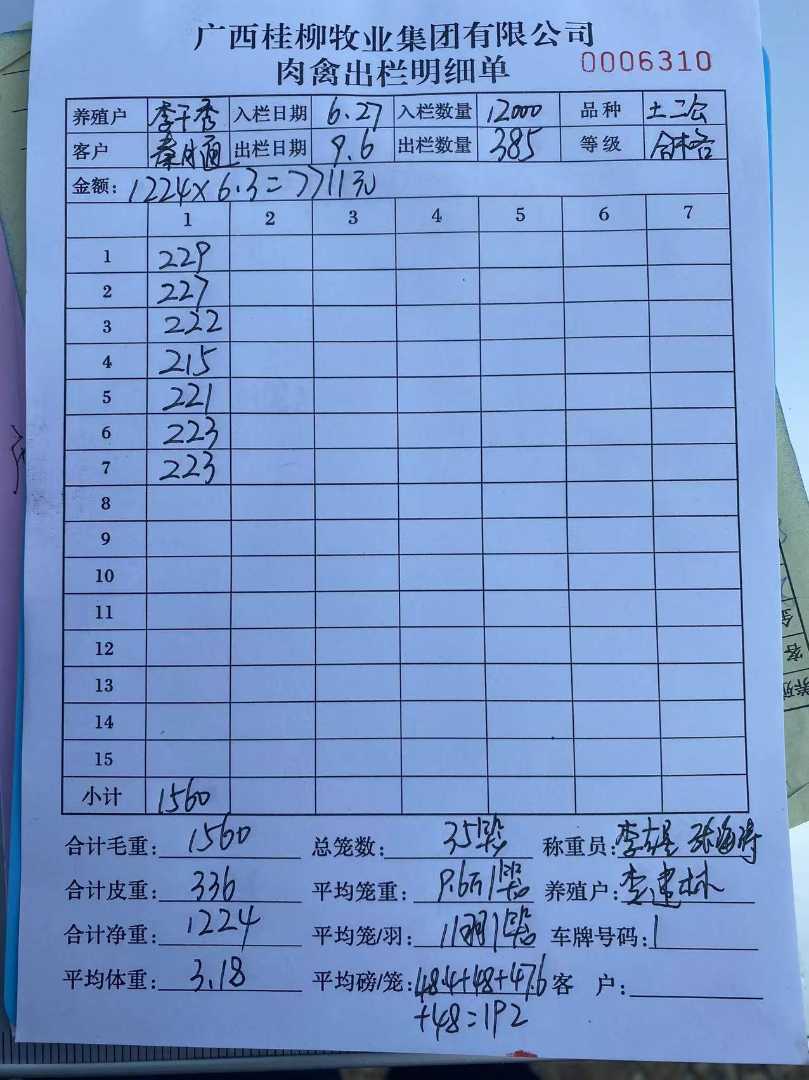 广西桂柳牧业集团有限公司
肉禽出栏明细单 0006310
养殖户 李子秀 入栏日期 6.27 入栏数量 12000 品种 土二
客户 秦 通 出栏日期 9.6 出栏数量 385 等级 合格
金额: 1224×6.3=7711元
1 2 3 4 5 6 7
1 229
2 227
3 222
4 215
5 221
6 223
7 223
8
9
10
11
12
13
14
15
小计 1560
合计毛重: 1560 总笼数: 35 称重员: 李 张海涛
合计皮重: 336 平均笼重: 9.6斤/ 养殖户: 李建林
合计净重: 1224 平均笼/羽: 11羽/ 车牌号码:
平均体重: 3.18 平均磅/笼: 48.4+48+47.6 客 户:
+48=192
养殖
客
金